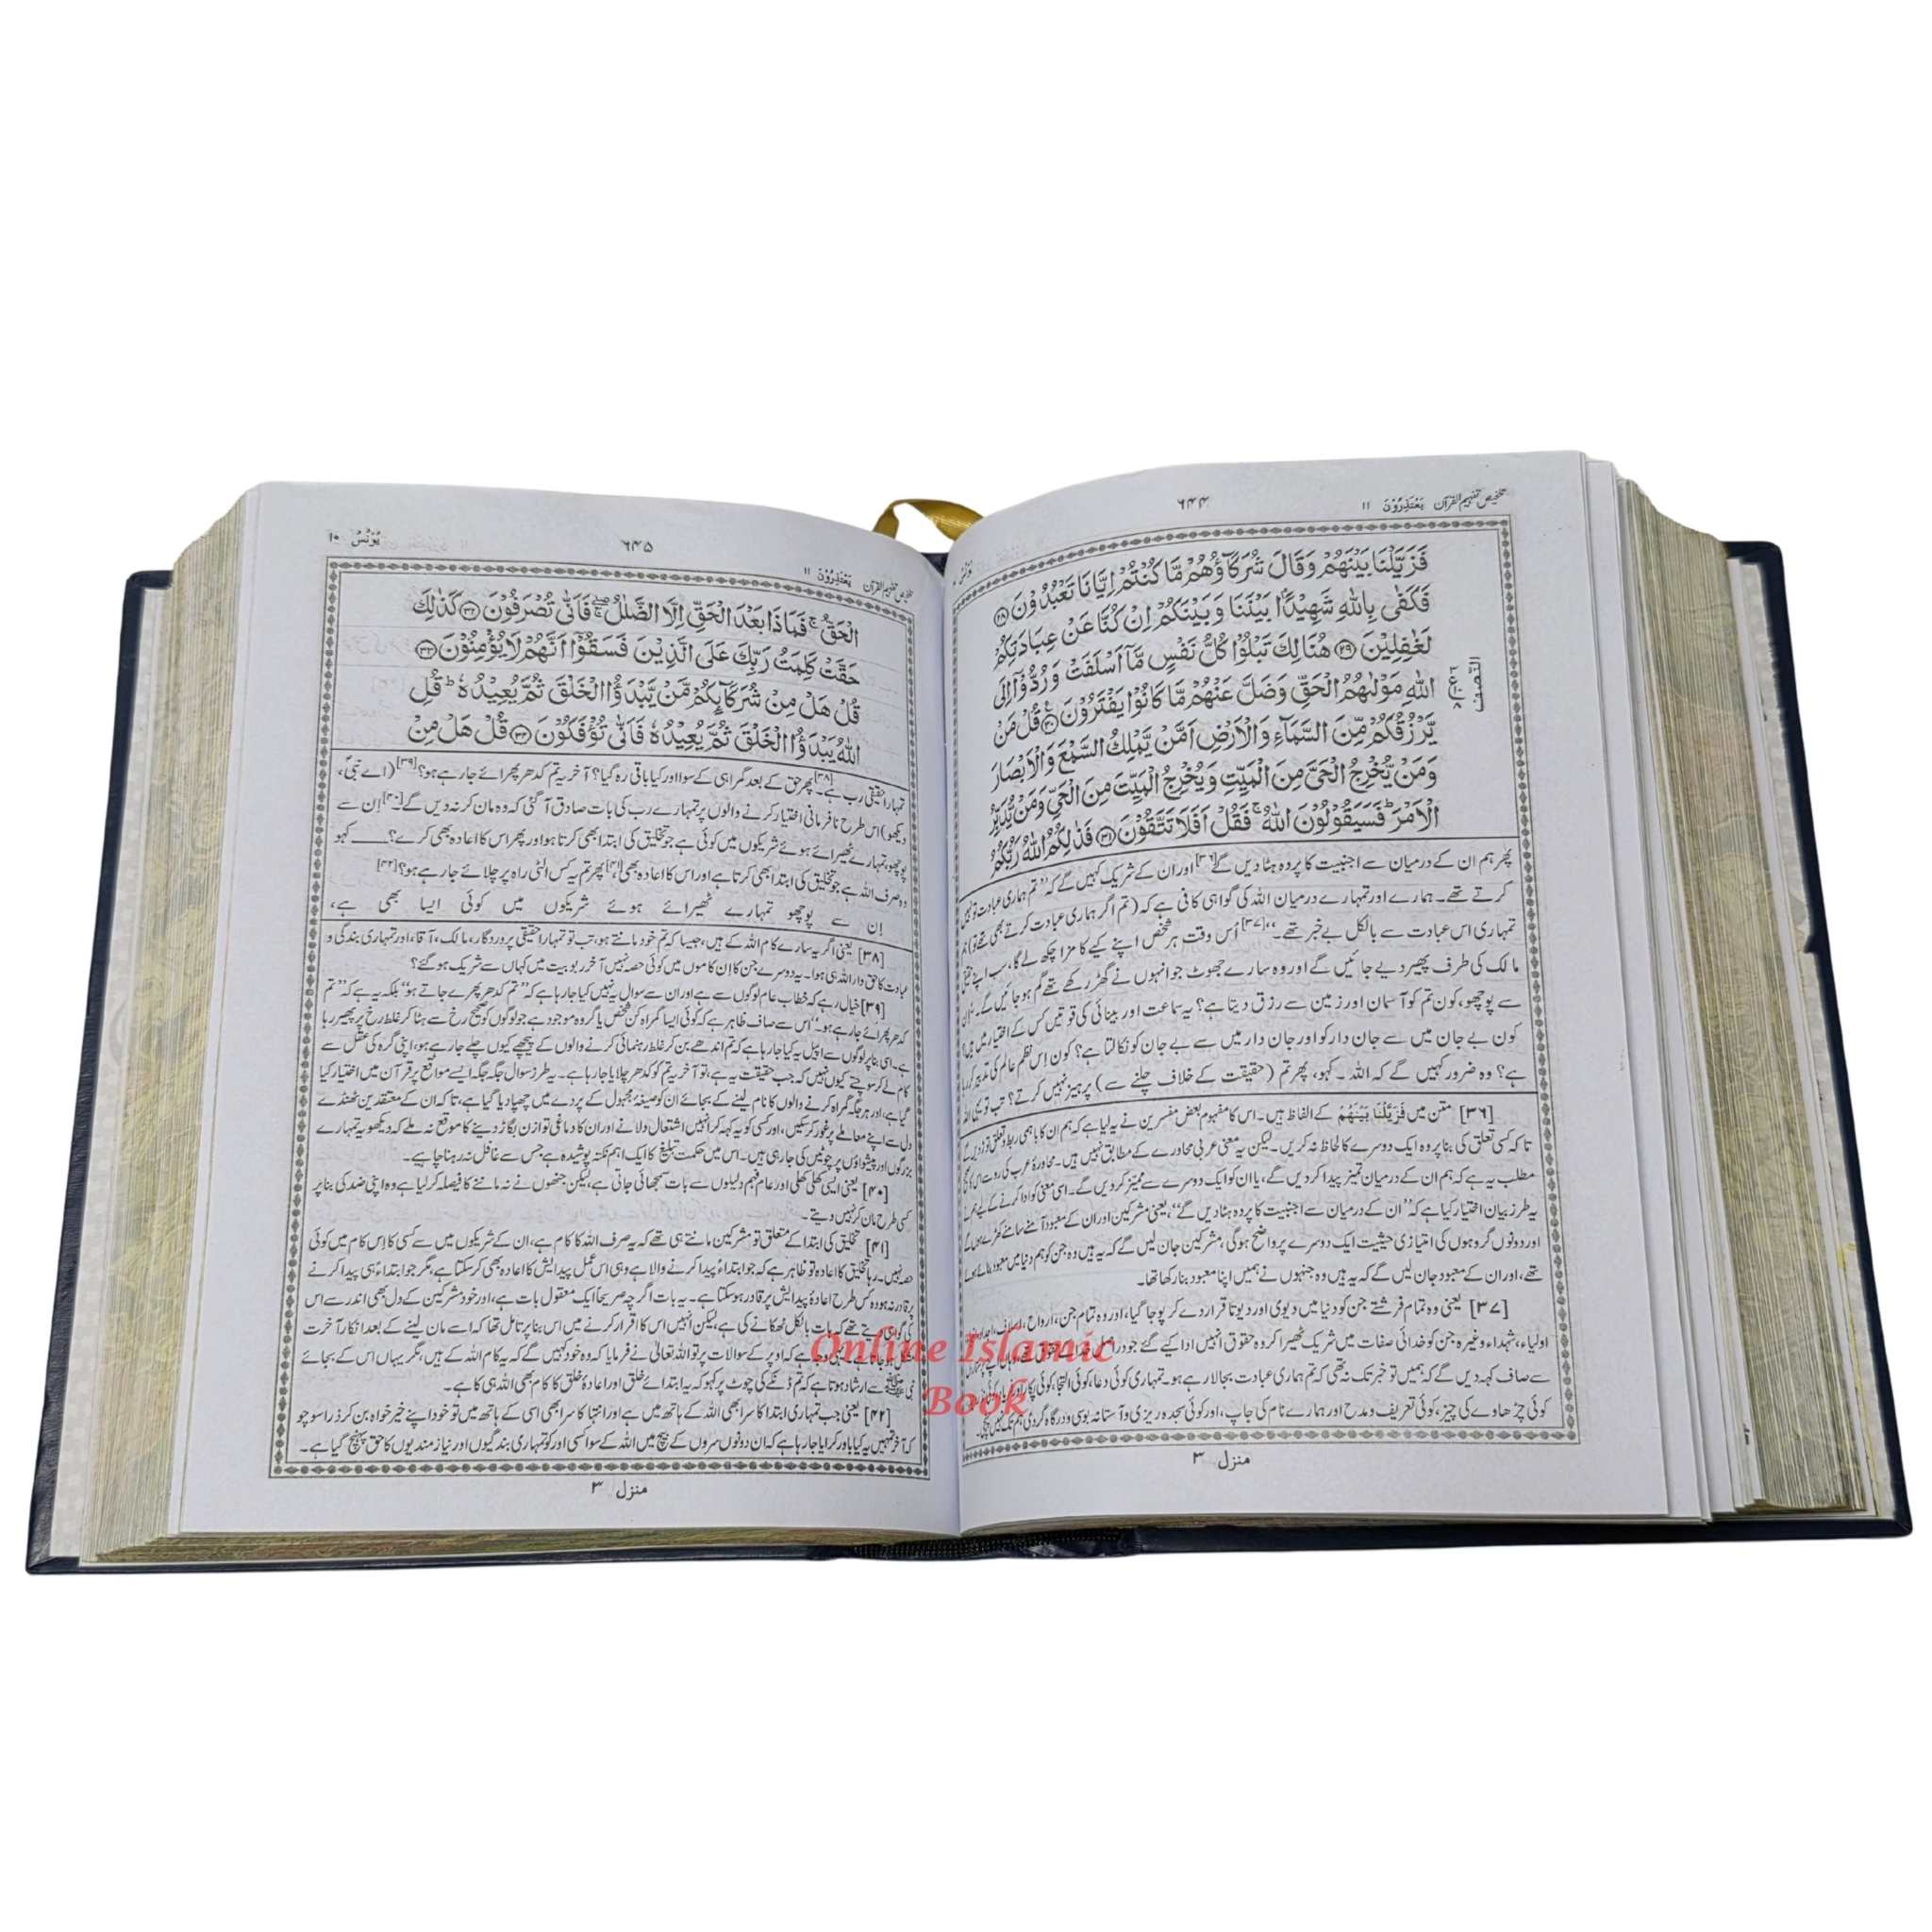 تلخیص تفہیم القرآن یَعْتَذِرُوْنَ ۱۱
۶۴۴
فَزَیَّلْنَا بَیْنَهُمْ وَقَالَ شُرَكَآؤُهُمْ مَّا كُنْتُمْ اِیَّانَا تَعْبُدُوْنَ ﴿۲۸﴾
فَكَفٰی بِاللّٰهِ شَهِیْدًۢا بَیْنَنَا وَبَیْنَكُمْ اِنْ كُنَّا عَنْ عِبَادَتِكُمْ
لَغٰفِلِیْنَ ﴿۲۹﴾ هُنَالِكَ تَبْلُوْا كُلُّ نَفْسٍ مَّاۤ اَسْلَفَتْ وَرُدُّوْۤا اِلَی
اللّٰهِ مَوْلٰىهُمُ الْحَقِّ وَضَلَّ عَنْهُمْ مَّا كَانُوْا یَفْتَرُوْنَ ﴿۳۰﴾ قُلْ مَنْ
یَّرْزُقُكُمْ مِّنَ السَّمَآءِ وَالْاَرْضِ اَمَّنْ یَّمْلِكُ السَّمْعَ وَالْاَبْصَارَ
وَمَنْ یُّخْرِجُ الْحَیَّ مِنَ الْمَیِّتِ وَیُخْرِجُ الْمَیِّتَ مِنَ الْحَیِّ وَمَنْ یُّدَبِّرُ
الْاَمْرَ ؕ فَسَیَقُوْلُوْنَ اللّٰهُ ۚ فَقُلْ اَفَلَا تَتَّقُوْنَ ﴿۳۱﴾ فَذٰلِكُمُ اللّٰهُ رَبُّكُمُ
النصف
پھر ہم ان کے درمیان سے اجنبیت کا پردہ ہٹا دیں گے[۳۶] اور ان کے شریک کہیں گے کہ ”تم ہماری عبادت تو نہیں
کرتے تھے۔ ہمارے اور تمہارے درمیان اللہ کی گواہی کافی ہے کہ (تم اگر ہماری عبادت کرتے بھی تھے تو) ہم
تمہاری اس عبادت سے بالکل بے خبر تھے۔“[۳۷] اُس وقت ہر شخص اپنے کیے کا مزا چکھ لے گا، سب اپنے حقیقی
مالک کی طرف پھیر دیے جائیں گے اور وہ سارے جھوٹ جو انہوں نے گھڑ رکھے تھے گم ہو جائیں گے۔ اِن
سے پوچھو، کون تم کو آسمان اور زمین سے رزق دیتا ہے؟ یہ سماعت اور بینائی کی قوتیں کس کے اختیار میں ہیں؟
کون بے جان میں سے جان دار کو اور جان دار میں سے بے جان کو نکالتا ہے؟ کون اِس نظم عالم کی تدبیر کر رہا
ہے؟ وہ ضرور کہیں گے کہ اللہ۔ کہو، پھر تم (حقیقت کے خلاف چلنے سے) پرہیز نہیں کرتے؟ تب تو یہی اللہ
[۳۶] متن میں فَزَیَّلْنَا بَیْنَهُمْ کے الفاظ ہیں۔ اس کا مفہوم بعض مفسرین نے یہ لیا ہے کہ ہم ان کا باہمی ربط و تعلق توڑ دیں گے
تا کہ کسی تعلق کی بنا پر وہ ایک دوسرے کا لحاظ نہ کریں۔ لیکن یہ معنی عربی محاورے کے مطابق نہیں ہیں۔ محاورۂ عرب کی رو سے اس کا صحیح
مطلب یہ ہے کہ ہم ان کے درمیان تمیز پیدا کر دیں گے، یا ان کو ایک دوسرے سے ممیّز کر دیں گے۔ اسی معنی کو ادا کرنے کے لیے ہم نے
یہ طرز بیان اختیار کیا ہے کہ ”ان کے درمیان سے اجنبیت کا پردہ ہٹا دیں گے“، یعنی مشرکین اور ان کے معبود آمنے سامنے کھڑے ہوں گے
اور دونوں گروہوں کی امتیازی حیثیت ایک دوسرے پر واضح ہوگی، مشرکین جان لیں گے کہ یہ ہیں وہ جن کو ہم دنیا میں معبود بنائے ہوئے
تھے، اور ان کے معبود جان لیں گے کہ یہ ہیں وہ جنہوں نے ہمیں اپنا معبود بنا رکھا تھا۔
[۳۷] یعنی وہ تمام فرشتے جن کو دنیا میں دیوی اور دیوتا قرار دے کر پوجا گیا، اور وہ تمام جن، ارواح، اسلاف، اجداد
اولیاء، شہداء وغیرہ جن کو خدائی صفات میں شریک ٹھیرا کر وہ حقوق انہیں ادا کیے گئے جو دراصل خدا کے حقوق تھے، وہاں اپنے پرستاروں
سے صاف کہہ دیں گے کہ ہمیں تو خبر تک نہ تھی کہ تم ہماری عبادت بجا لا رہے ہو۔ تمہاری کوئی دعا، کوئی التجا، کوئی پکار اور فریاد، کوئی
کوئی چڑھاوے کی چیز، کوئی تعریف و مدح اور ہمارے نام کی جاپ، اور کوئی سجدہ ریزی و آستانہ بوسی و درگاہ گردی ہم تک نہیں پہنچی۔
منزل ۳
تلخیص تفہیم القرآن یَعْتَذِرُوْنَ ۱۱
۶۴۵
یُوْنُسُ ۱۰
الْحَقُّ ۚ فَمَاذَا بَعْدَ الْحَقِّ اِلَّا الضَّلٰلُ ۖۚ فَاَنّٰی تُصْرَفُوْنَ ﴿۳۲﴾ كَذٰلِكَ
حَقَّتْ كَلِمَتُ رَبِّكَ عَلَی الَّذِیْنَ فَسَقُوْۤا اَنَّهُمْ لَا یُؤْمِنُوْنَ ﴿۳۳﴾
قُلْ هَلْ مِنْ شُرَكَآئِكُمْ مَّنْ یَّبْدَؤُا الْخَلْقَ ثُمَّ یُعِیْدُهٗ ؕ قُلِ
اللّٰهُ یَبْدَؤُا الْخَلْقَ ثُمَّ یُعِیْدُهٗ فَاَنّٰی تُؤْفَكُوْنَ ﴿۳۴﴾ قُلْ هَلْ مِنْ
تمہارا حقیقی رب ہے۔[۳۸] پھر حق کے بعد گمراہی کے سوا اور کیا باقی رہ گیا؟ آخر یہ تم کدھر پھرائے جا رہے ہو؟[۳۹] (اے نبیؐ،
دیکھو) اس طرح نافرمانی اختیار کرنے والوں پر تمہارے رب کی بات صادق آ گئی کہ وہ مان کر نہ دیں گے۔[۴۰] اِن سے
پوچھو، تمہارے ٹھیرائے ہوئے شریکوں میں کوئی ہے جو تخلیق کی ابتدا بھی کرتا ہو اور پھر اس کا اعادہ بھی کرے؟ ـــ کہو
وہ صرف اللہ ہے جو تخلیق کی ابتدا بھی کرتا ہے اور اس کا اعادہ بھی،[۴۱] پھر تم یہ کس الٹی راہ پر چلائے جا رہے ہو؟[۴۲]
اِن سے پوچھو تمہارے ٹھیرائے ہوئے شریکوں میں کوئی ایسا بھی ہے،
[۳۸] یعنی اگر یہ سارے کام اللہ کے ہیں، جیسا کہ تم خود مانتے ہو، تب تو تمہارا حقیقی پروردگار، مالک، آقا، اور تمہاری بندگی و
عبادت کا حق دار اللہ ہی ہوا۔ یہ دوسرے جن کا اِن کاموں میں کوئی حصہ نہیں آخر ربوبیت میں کہاں سے شریک ہو گئے؟
[۳۹] خیال رہے کہ خطاب عام لوگوں سے ہے اور ان سے سوال یہ نہیں کیا جا رہا ہے کہ ”تم کدھر پھرے جاتے ہو“ بلکہ یہ ہے کہ ”تم
کدھر پھرائے جا رہے ہو۔“ اس سے صاف ظاہر ہے کہ کوئی ایسا گمراہ کن شخص یا گروہ موجود ہے جو لوگوں کو صحیح رخ سے ہٹا کر غلط رخ پر پھیر رہا
ہے۔ اسی بنا پر لوگوں سے اپیل یہ کیا جا رہا ہے کہ تم اندھے بن کر غلط رہنمائی کرنے والوں کے پیچھے کیوں چلے جا رہے ہو، اپنی گرہ کی عقل سے
کام لے کر سوچتے کیوں نہیں کہ جب حقیقت یہ ہے، تو آخر یہ تم کو کدھر چلایا جا رہا ہے۔ یہ طرز سوال جگہ جگہ ایسے مواقع پر قرآن میں اختیار کیا
گیا ہے، اور ہر جگہ گمراہ کرنے والوں کا نام لینے کے بجائے ان کو صیغۂ مجہول کے پردے میں چھپا دیا گیا ہے، تا کہ ان کے معتقدین ٹھنڈے
دل سے اپنے معاملے پر غور کر سکیں، اور کسی کو یہ کہہ کر انہیں اشتعال دلانے اور ان کا دماغی توازن بگاڑ دینے کا موقع نہ ملے کہ دیکھو یہ تمہارے
بزرگوں اور پیشواؤں پر چوٹیں کی جا رہی ہیں۔ اس میں حکمت تبلیغ کا ایک اہم نکتہ پوشیدہ ہے جس سے غافل نہ رہنا چاہیے۔
[۴۰] یعنی ایسی کھلی کھلی اور عام فہم دلیلوں سے بات سمجھائی جاتی ہے، لیکن جنھوں نے نہ ماننے کا فیصلہ کر لیا ہے وہ اپنی ضد کی بنا پر
کسی طرح مان کر نہیں دیتے۔
[۴۱] تخلیق کی ابتدا کے متعلق تو مشرکین مانتے ہی تھے کہ یہ صرف اللہ کا کام ہے، ان کے شریکوں میں سے کسی کا اِس کام میں کوئی
حصہ نہیں۔ رہا تخلیق کا اعادہ تو ظاہر ہے کہ جو ابتداءً پیدا کرنے والا ہے وہی اس عمل پیدایش کا اعادہ بھی کر سکتا ہے، مگر جو ابتداءً ہی پیدا کرنے
پر قادر نہ ہو وہ کس طرح اعادۂ پیدایش پر قادر ہو سکتا ہے۔ یہ بات اگرچہ صریحاً ایک معقول بات ہے، اور خود مشرکین کے دل بھی اندر سے اس
کی گواہی دیتے تھے کہ بات بالکل ٹھکانے کی ہے، لیکن انہیں اس کا اقرار کرنے میں اس بنا پر تامل تھا کہ اسے مان لینے کے بعد انکار آخرت
مشکل ہو جاتا ہے۔ یہی وجہ ہے کہ اوپر کے سوالات پر تو اللہ تعالیٰ نے فرمایا کہ وہ خود کہیں گے کہ یہ کام اللہ کے ہیں، مگر یہاں اس کے بجائے
نبی ﷺ سے ارشاد ہوتا ہے کہ تم ڈنکے کی چوٹ پر کہو کہ یہ ابتدائے خلق اور اعادۂ خلق کا کام بھی اللہ ہی کا ہے۔
[۴۲] یعنی جب تمہاری ابتدا کا سرا بھی اللہ کے ہاتھ میں ہے اور انتہا کا سرا بھی اسی کے ہاتھ میں تو خود اپنے خیر خواہ بن کر ذرا سوچو
کہ آخر تمہیں یہ کیا باور کرایا جا رہا ہے کہ ان دونوں سروں کے بیچ میں اللہ کے سوا کسی اور کو تمہاری بندگیوں اور نیاز مندیوں کا حق پہنچ گیا ہے۔
منزل ۳
Online Islamic
Book